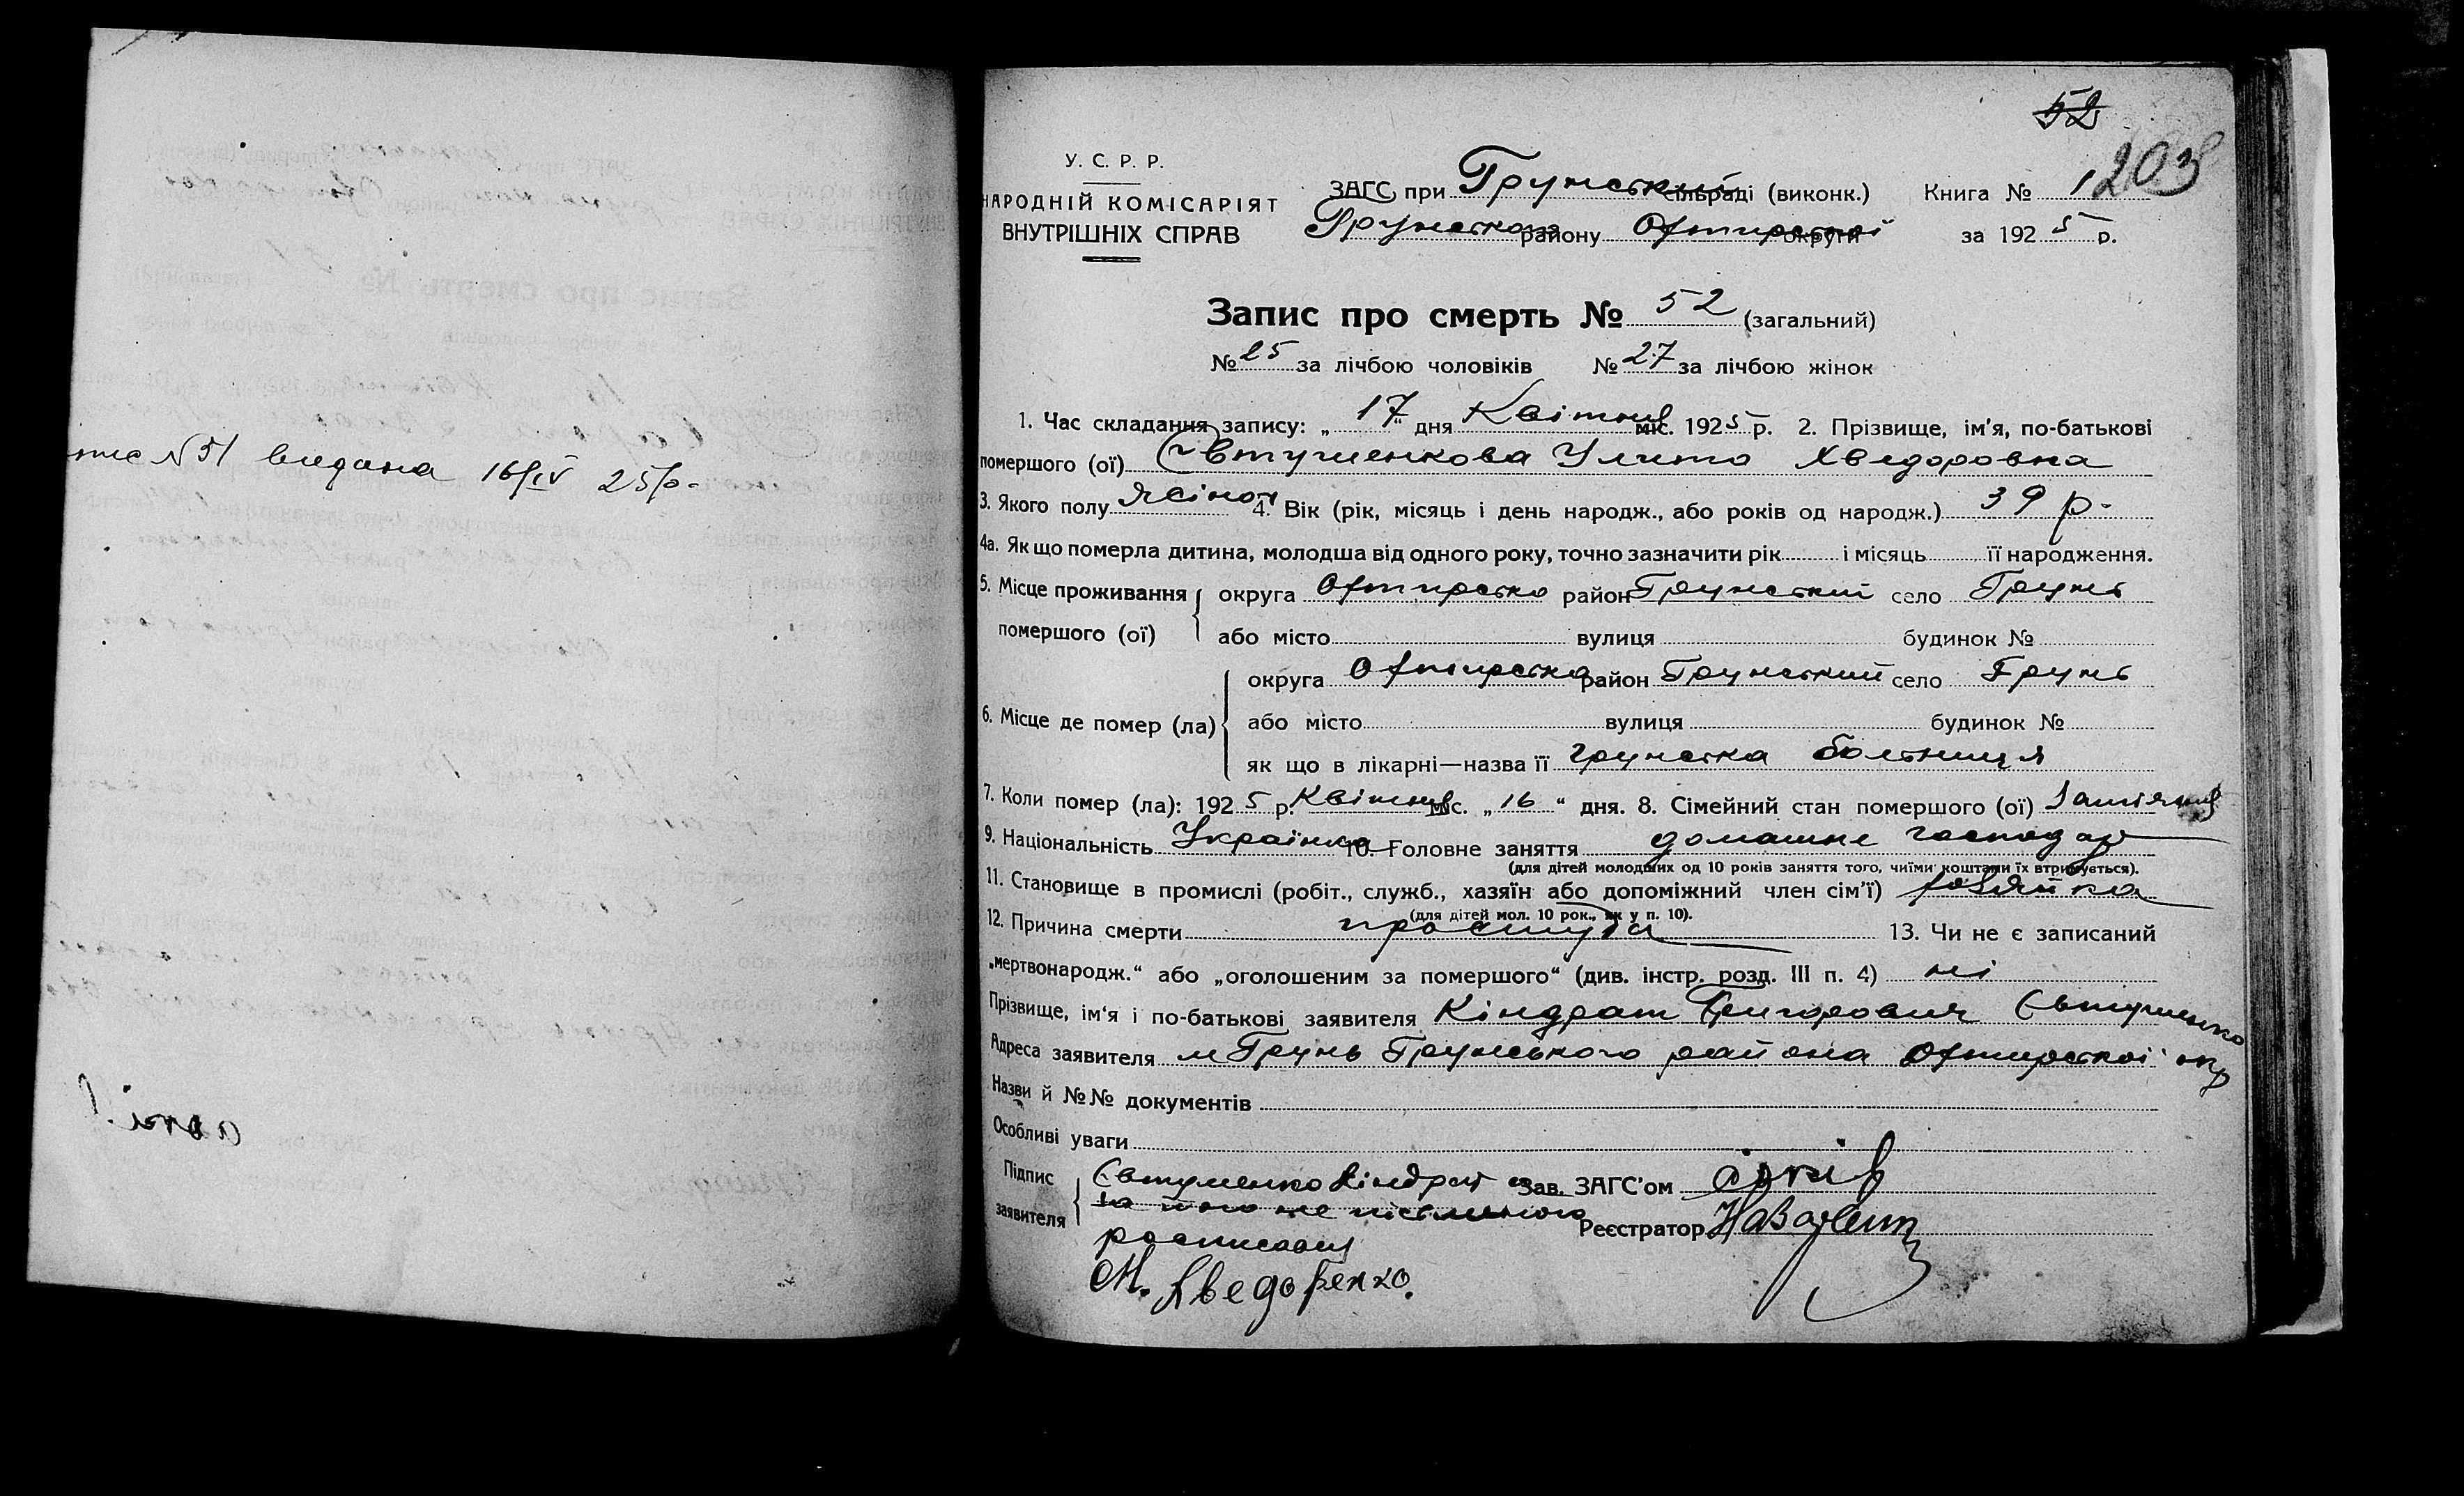 № 51 видана 16/IV 25 р.
52
203
У. С. Р. Р.
НАРОДНІЙ КОМІСАРІЯТ
ВНУТРІШНІХ СПРАВ
ЗАГС при Грунський сільраді (виконк.) Книга № 1
Грунського району Охтирської округи за 1925 р.
Запис про смерть № 52 (загальний)
№ 25 за лічбою чоловіків № 27 за лічбою жінок
1. Час складання запису: „17“ дня Квітня міс. 1925 р. 2. Прізвище, ім'я, по-батькові
помершого (ої) Євтушенкова Улита Хведоровна
3. Якого полу жіноч 4. Вік (рік, місяць і день народж., або років од народж.) 39 р.
4а. Як що померла дитина, молодша від одного року, точно зазначити рік і місяць її народження.
5. Місце проживання округа Охтирська район Грунський село Грунь
помершого (ої) або місто вулиця будинок №
округа Охтирська район Грунський село Грунь
6. Місце де помер (ла) або місто вулиця будинок №
як що в лікарні—назва її грунська больниця
7. Коли помер (ла): 1925 р. Квітня міс. „16“ дня. 8. Сімейний стан помершого (ої)
9. Національність Українка 10. Головне заняття домашне господар
(для дітей молодших од 10 років заняття того, чиїми коштами їх втримується).
11. Становище в промислі (робіт., служб., хазяїн або допоміжний член сім'ї) хозяйка
(для дітей мол. 10 рок., як у п. 10).
12. Причина смерти простуда 13. Чи не є записаний
„мертвонародж.“ або „оголошеним за помершого“ (див. інстр. розд. III п. 4) ні
Прізвище, ім'я і по-батькові заявителя Кіндрат Григорович Євтушенко
Адреса заявителя м Грунь Грунського района Охтирської окр
Назви й №№ документів
Особливі уваги
Підпис заявителя Євтушенко Кіндрат а Зав. ЗАГС'ом
за його не письменого Реєстратор
росписався
М. Хведоренко.